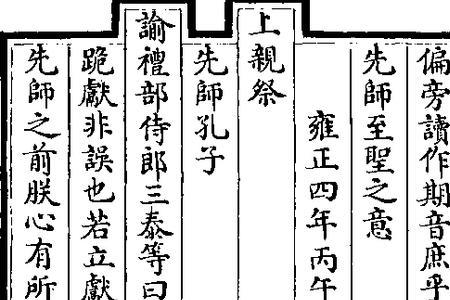 偏旁讀作期音庶乎
先師至聖之意
雍正四年丙午
上親祭
先師孔子
諭禮部侍郎三泰等曰
跪獻非誤也若立獻
先師之前朕心有所